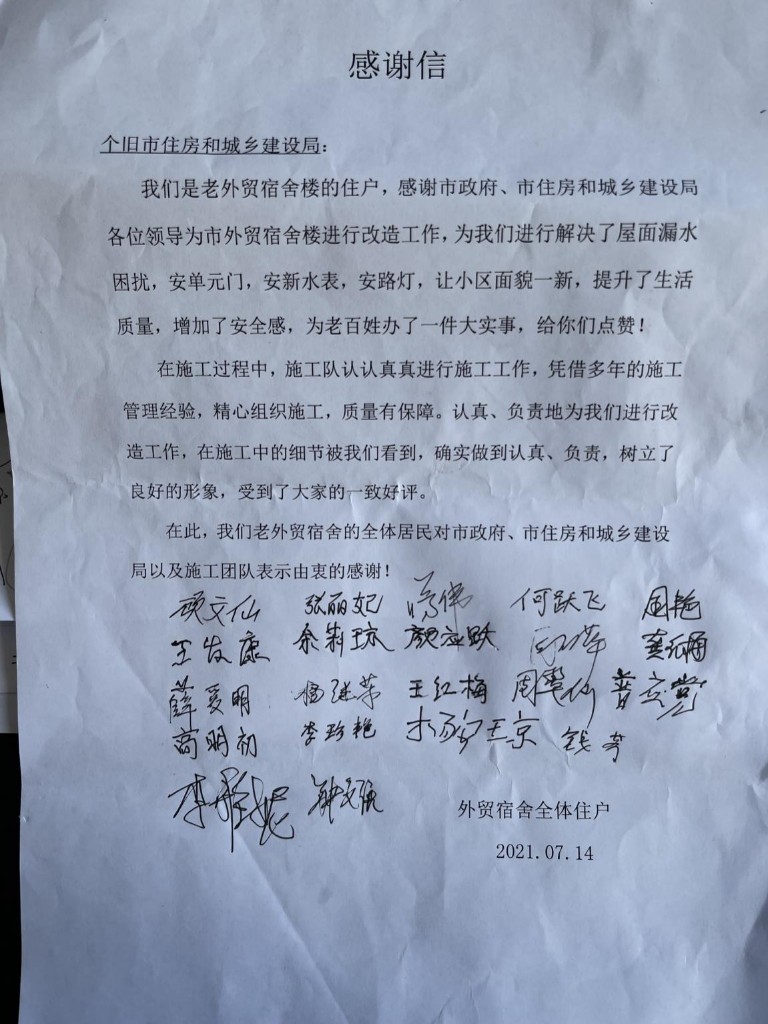 感谢信
个旧市住房和城乡建设局：
我们是老外贸宿舍楼的住户，感谢市政府、市住房和城乡建设局
各位领导为市外贸宿舍楼进行改造工作，为我们进行解决了屋面漏水
困扰，安单元门，安新水表，安路灯，让小区面貌一新，提升了生活
质量，增加了安全感，为老百姓办了一件大实事，给你们点赞！
在施工过程中，施工队认认真真进行施工工作，凭借多年的施工
管理经验，精心组织施工，质量有保障。认真、负责地为我们进行改
造工作，在施工中的细节被我们看到，确实做到认真、负责，树立了
良好的形象，受到了大家的一致好评。
在此，我们老外贸宿舍的全体居民对市政府、市住房和城乡建设
局以及施工团队表示由衷的感谢！
张丽妃 何跃飞 周艳
王发康
薛爱明 杨继荣 王红梅
高明初 李珍艳 王京
外贸宿舍全体住户
2021.07.14